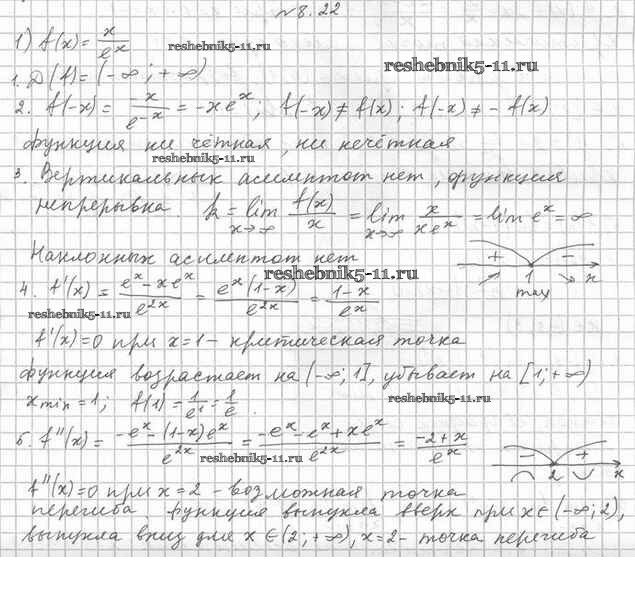 № 8.22
1) f(x) = x/e^x
reshebnik5-11.ru
reshebnik5-11.ru
1. D(f) = (-∞; +∞)
2. f(-x) = x/e^-x = -xe^x; f(-x) ≠ f(x); f(-x) ≠ - f(x)
функция ни чётная, ни нечётная
reshebnik5-11.ru
3. Вертикальных асимптот нет, функция
непрерывна. k = lim x→∞ f(x)/x = lim x→∞ x/xe^x = lim e^x = ∞
Наклонных асимптот нет
reshebnik5-11.ru
+ - 1 max x
4. f'(x) = e^x - xe^x/e^2x = e^x(1-x)/e^2x = 1-x/e^x
reshebnik5-11.ru
f'(x) = 0 при x = 1 - критическая точка
функция возрастает на (-∞; 1], убывает на [1; +∞)
x min = 1; f(1) = 1/e^1 = 1/e.
reshebnik5-11.ru
5. f''(x) = -e^x - (1-x)e^x/e^2x = -e^x - e^x + xe^x/e^2x = -2+x/e^x
reshebnik5-11.ru
- + 2 x
f''(x) = 0 при x = 2 - возможная точка
перегиба. Функция выпукла вверх при x ∈ (-∞; 2),
выпукла вниз для x ∈ (2; +∞), x = 2 - точка перегиба